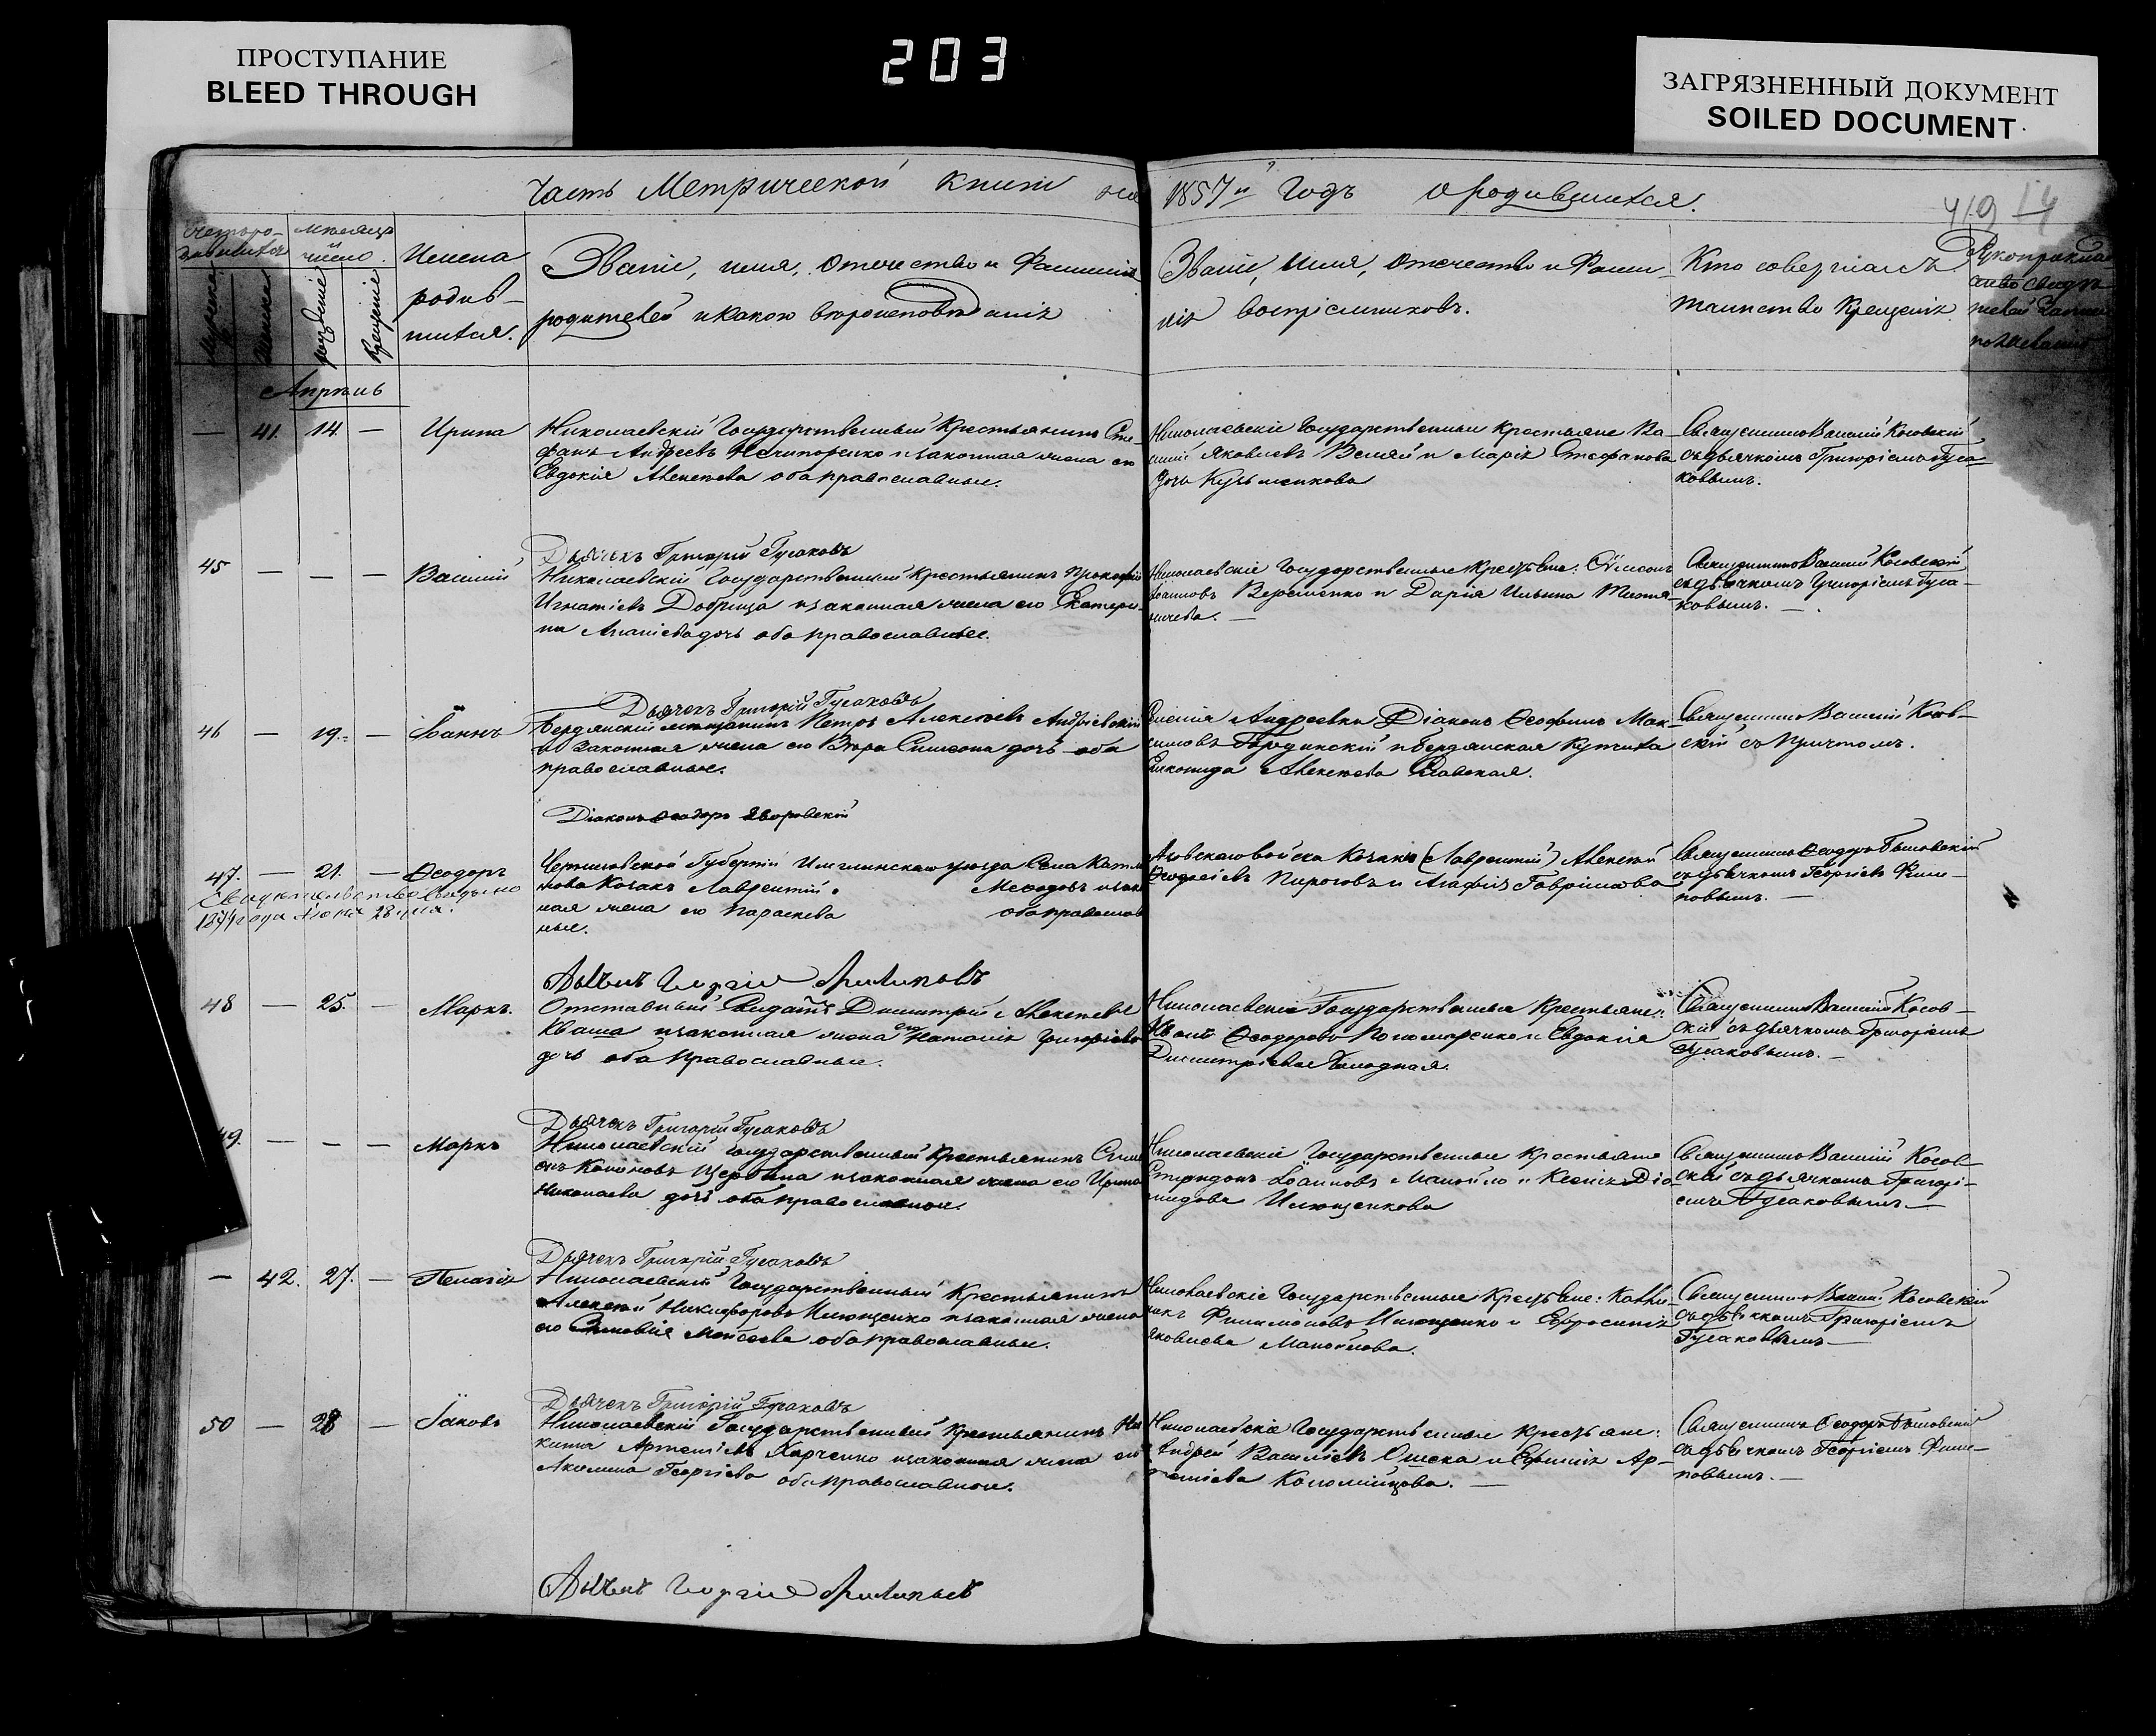 ПРОСТУПАНИЕ
BLEED THROUGH
203
ЗАГРЯЗНЕННЫЙ ДОКУМЕНТ
SOILED DOCUMENT
Часть Метрической книги на 1857й Годъ о родившихся.
419 14
месяцъ
и
число.
рождение
крещение
Имена
родив-
шихся.
Званіе, имя, отечество и Фамилія
родителей и какого вероисповеданія
Званіе, имя, отечество и Фами-
лія воспріемниковъ.
Кто совершалъ
таинство Крещенія
Апрель
— 41. 14. — Ирина
Николаевскій Государственный Крестьянинъ Сте-
фанъ Андреевъ Нечипоренко и законная жена его
Евдокія Алексеева оба православные.
Николаевскіе Государственные Крестьяне Ва-
силій Яковлевъ и Марія Стефанова
дочь Кузьменкова
Священникъ Василій Косовскій
съ дьячкомъ Григоріемъ Гуса-
ковымъ.
Дьячекъ Григорій Гусаковъ
45 — — — Василій
Николаевскій Государственный Крестьянинъ Прокофій
Игнатіевъ Добрица и законная жена его Екатери-
на Ананіева дочь оба православные.
Николаевскіе Государственные Крестьяне: Симеонъ
Іоанновъ Веремѣенко и Дарія Ильина
Священникъ Василій Косовскій
съ дьячкомъ Григоріемъ Гуса-
ковымъ. —
Дьячекъ Григорій Гусаковъ
46 — 19. — Іоаннъ
Бердянскій мещанинъ Петръ Алексеевъ Андріевскій
и законная жена его Вера Симеона дочь оба
православные.
Андреевки Діаконъ Ѳеофилъ Мак-
симовъ Бородинскій и Бердянская Купчиха
Алексеева
Священникъ Василій Косов-
скій съ Причтомъ.
Діаконъ Ѳеодоръ Яворовскій
47. — 21. — Ѳеодоръ
Свидетельство выдано
1874 года Июня 28 дня.
Черниговской Губерніи уезда Села
Козакъ Лаврентій Меѳодовъ и закон
ная жена его Параскева оба православ
ные.
Азовскаго войска Козакъ (Лаврентій) Алексей
Ѳеодосіевъ Пироговъ и Агафія Гаврилова
Священникъ Ѳеодоръ
съ дьячкомъ Георгіемъ Фили-
повымъ. —
Дьячекъ Георгій Филиповъ
48 — 25. — Маркъ.
Отставный Солдатъ Димитрій Алексеевъ
Кваша и законная жена его Наталія Григоріева
дочь оба православные.
Николаевскіе Государственные Крестьяне:
Ѳеодоровъ Пономаренко и Евдокія
Димитріева Голодная.
Священникъ Василій Косов-
скій съ дьячкомъ Григоріемъ
Гусаковымъ. —
Дьячекъ Григорій Гусаковъ
49. — — — Маркъ
Николаевскій Государственный Крестьянинъ Симе
онъ Кононовъ Щербина и законная жена его Ирина
Николаева дочь оба православные.
Николаевскіе Государственные Крестьяне
Спиридонъ Іоанновъ Манойло и Ксенія Діо-
мидова Илющенкова
Священникъ Василій Косов-
скій съ дьячкомъ Григорі-
емъ Гусаковымъ. —
Дьячекъ Григорій Гусаковъ
— 42. 27. — Пелагія
Николаевскій Государственный Крестьянинъ
Алексей Никифоровъ Илющенко и законная жена
его Моисеева оба православные.
Николаевскіе Государственные Крестьяне:
Филимоновъ Илющенко и Евфросинія
Яковлева Манойлова.
Священникъ Василій Косовскій
съ дьячкомъ Григоріемъ
Гусаковымъ —
Дьячекъ Григорій Гусаковъ
50 — 28 — Іаковъ
Николаевскій Государственный Крестьянинъ Ни
кита Артеміевъ Харченко и законная жена его
Акилина Георгіева оба православные.
Николаевскіе Государственные Крестьяне:
Андрей Василіевъ и Евфимія Ар-
теміева Коломійцова. —
Священникъ Ѳеодоръ
съ дьячкомъ Георгіемъ Фили-
повымъ. —
Дьячекъ Георгій Филиповъ